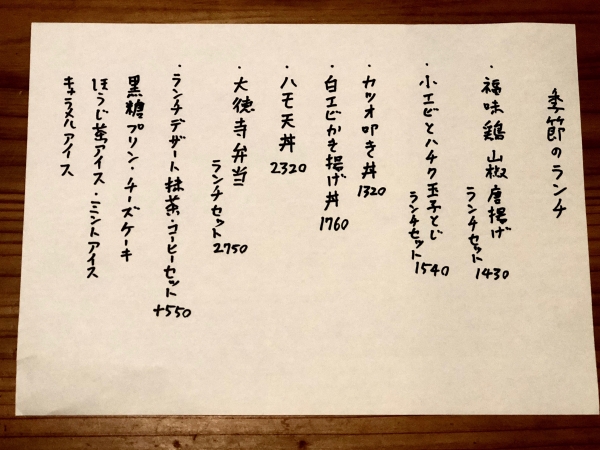 季節のランチ
・福味鶏山椒唐揚げ
ランチセット
1430
・小エビとハチク玉子とじ
ランチセット
1540
・カツオ叩き丼
1320
・白エビかき揚げ丼
1760
・ハモ天丼
2320
・大徳寺弁当
ランチセット
2750
・ランチデザート抹茶・コーヒーセット
+550
黒糖プリン・チーズケーキ
ほうじ茶アイス・ミントアイス
キャラメルアイス